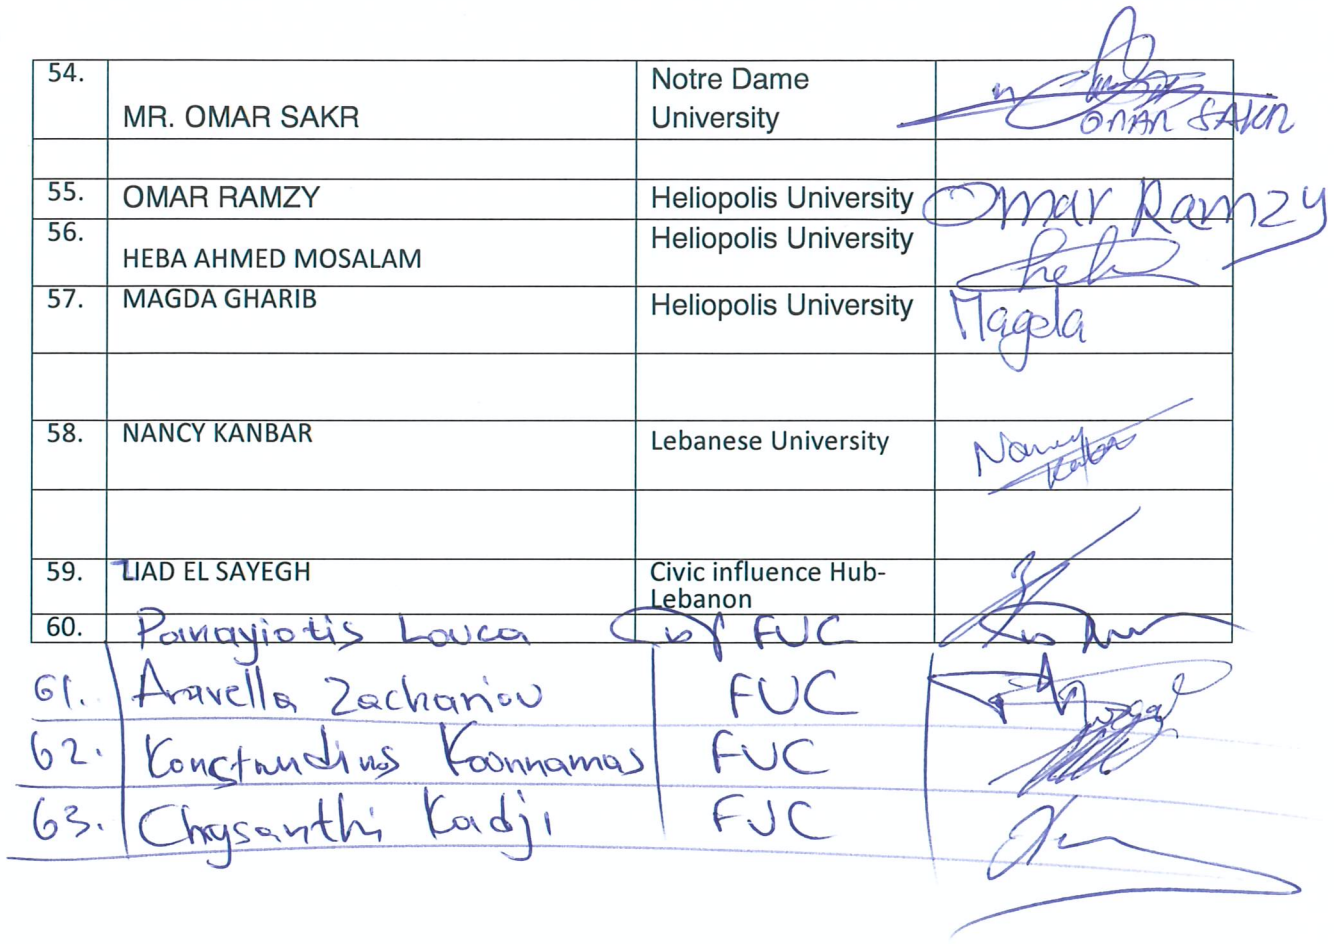 54. MR. OMAR SAKR Notre Dame University OMAR SAKR
55. OMAR RAMZY Heliopolis University Omar Ramzy
56. HEBA AHMED MOSALAM Heliopolis University Heba
57. MAGDA GHARIB Heliopolis University Magda
58. NANCY KANBAR Lebanese University Nancy
59. ZIAD EL SAYEGH Civic influence Hub-Lebanon
60. Panayiotis Louca FUC
61. Aravella Zachariou FUC
62. FUC
63. Chrysanthi Kadji FUC